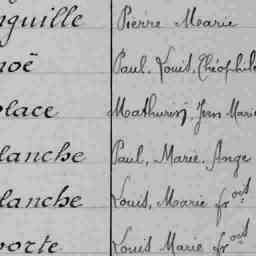 nguille Pierre Marie
noë Paul, Louis, Théophile
place Mathurin, Jean Marie
lanche Paul, Marie, Ange
lanche Louis, Marie fcois
porte Louis Marie fcois